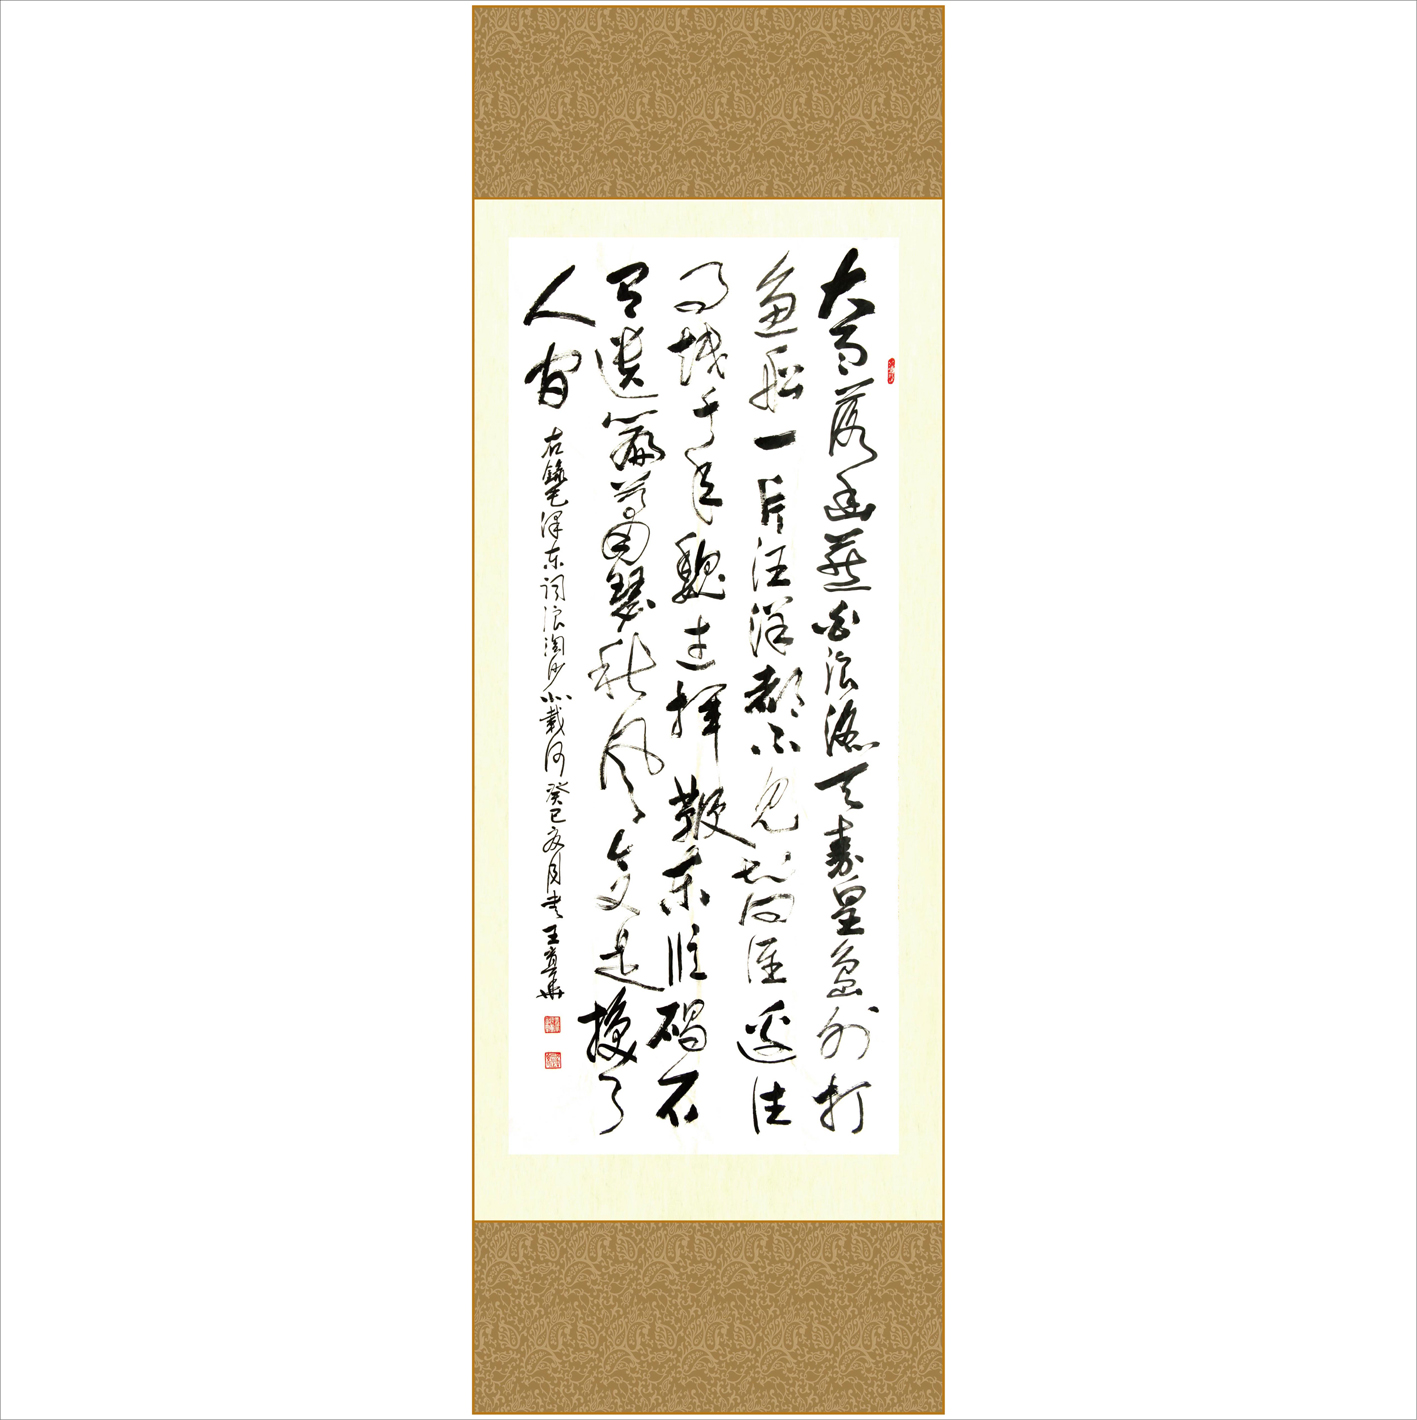 大雨落幽燕白浪滔天秦皇岛外打
鱼船一片汪洋都不见知向谁边往
事越千年魏武挥鞭东临碣石
有遗篇萧瑟秋风今又是换了
人间
右录毛泽东词浪淘沙北戴河癸巳夏月书王